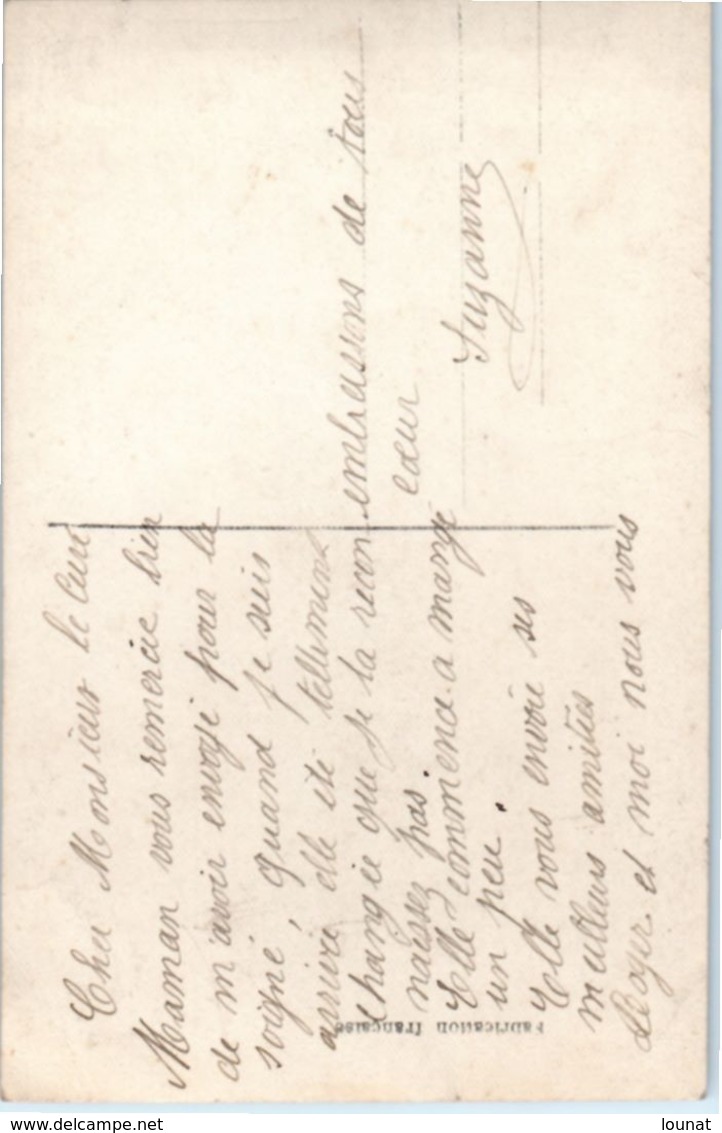 Cher Monsieur le Curé
Maman vous remercie bien
de m'avoir envoyé pour la
soigné, quand je suis
arrivée elle été tellement
changée que je la recon
naissez pas.
Elle commence a mangé
un peu.
Elle vous envoie ses
meilleurs amitiés
Léoyer et moi nous vous
embrassons de tous
cœur
Suzanne
Fabrication française
delcampe.net
lounat